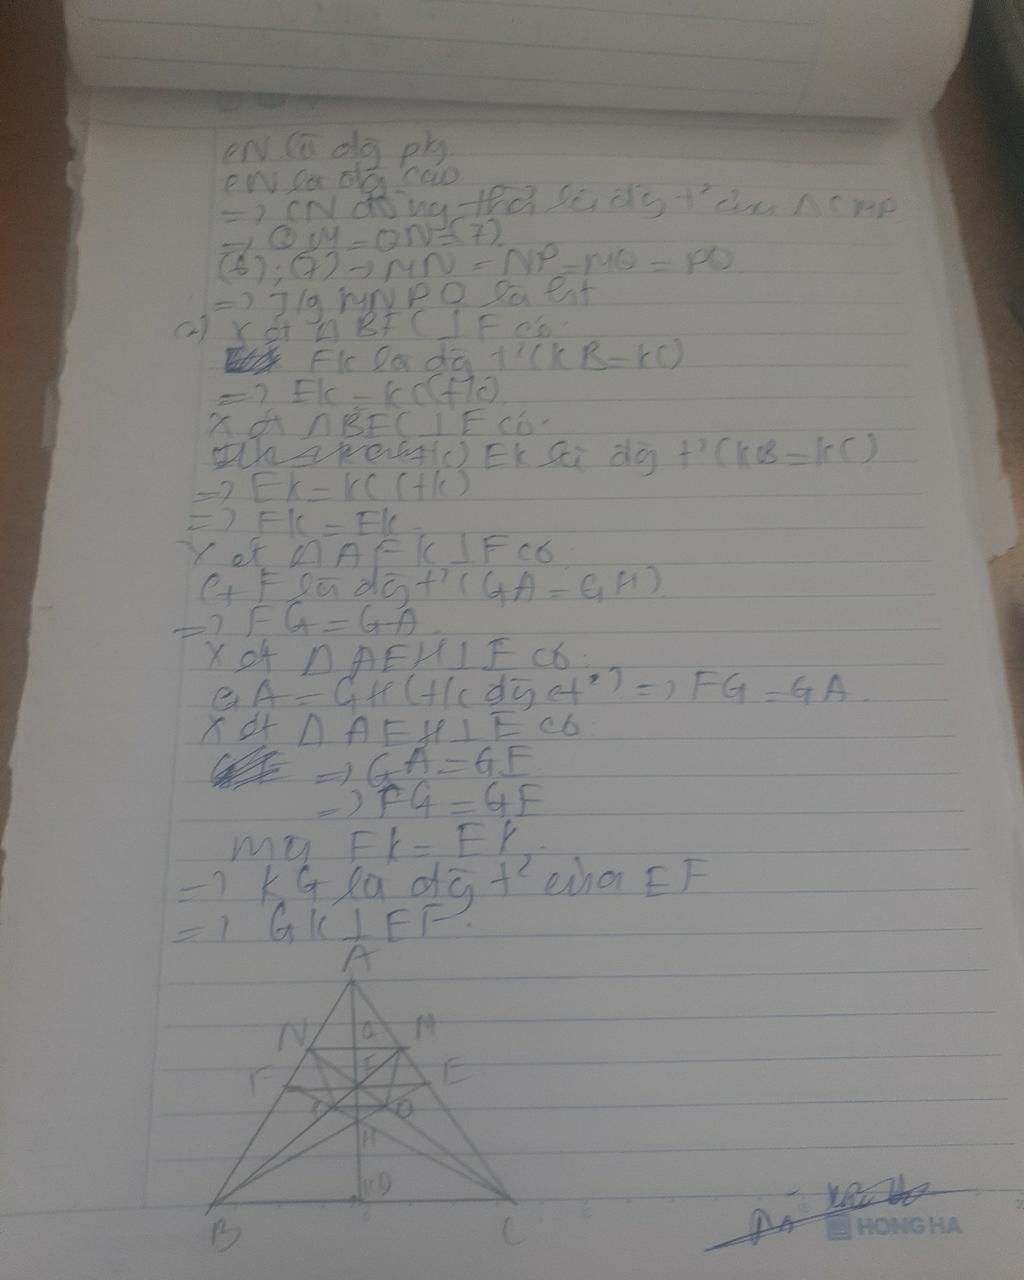 CN là dg pkg
CN là đg cao
=> CN đồng thời là đg t² của Δ CMP
=> QM = QN (7)
(6); (7) => MN = NP = MQ = PQ
=> T/g MNPQ là
c) Xét Δ BFC ⊥ F có:
FK là dg t' (KB = KC)
=> FK = KC (t/c)
Xét Δ BEC ⊥ E có:
EK là dg t' (KB = KC)
=> EK = KC (t/c)
=> FK = EK
Xét Δ AFK ⊥ F có
GF là dg t' (GA = GH)
=> FG = GA
Xét Δ AEH ⊥ E có:
GA = GH (t/c dg t²) => FG = GA
Xét Δ AEH ⊥ E có
=> GA = GE
=> FG = GE
mà FK = EK
=> KG là dg t² của EF
=> GK ⊥ EF.
A
N G M
I
F E
P Q
H
K D
B C
HONG HA